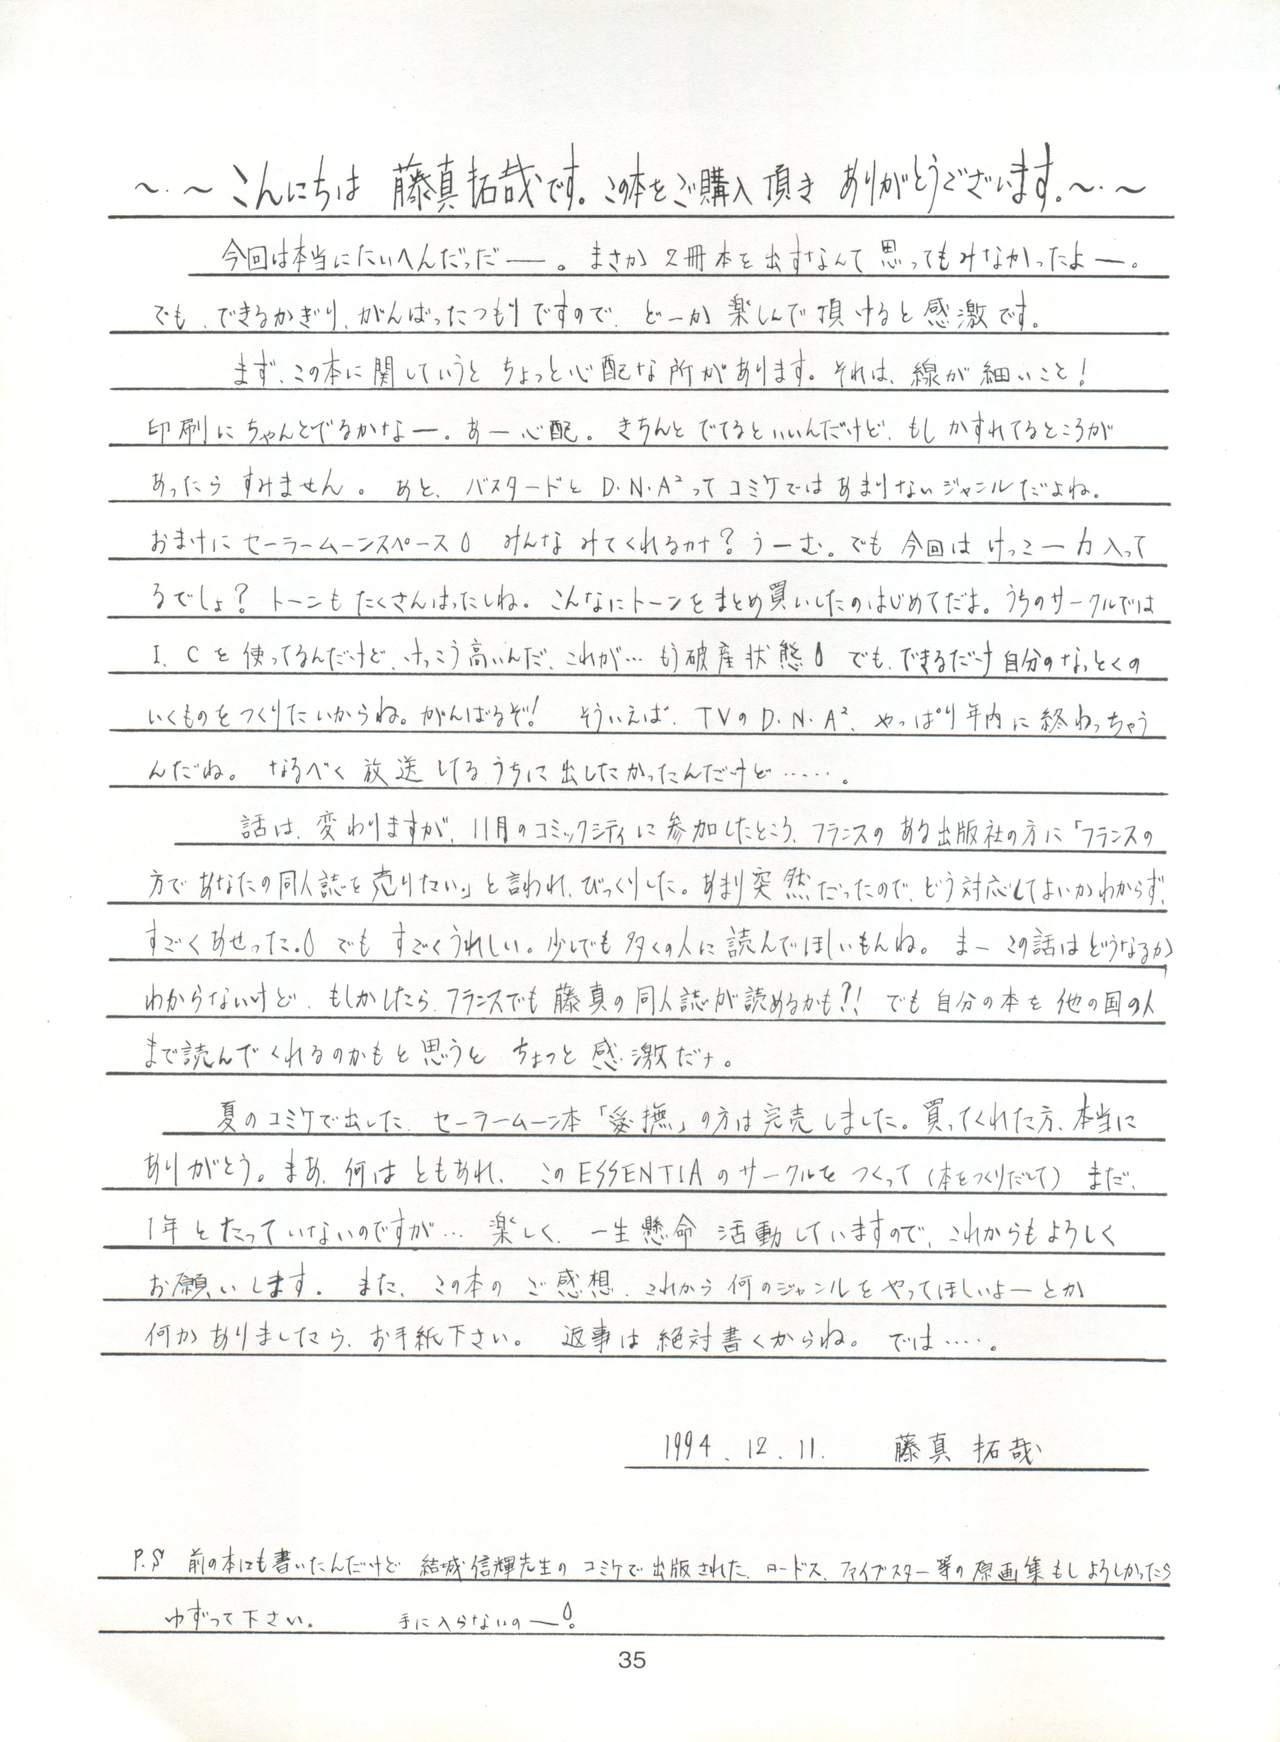 ～・～こんにちは 藤真拓哉です。この本をご購入頂き ありがとうございます。～・～
今回は本当にたいへんだっだー。まさか2冊本を出すなんて思ってもみなかったよー。
でも、できるかぎり、がんばったつもりですので、どーか楽しんで頂けると感激です。
まず、この本に関していうと ちょっと心配な所があります。それは、線が細いこと!
印刷にちゃんとでるかなー。あー心配。きちんとでてるといいんだけど、もし かすれてるところが
あったら すみません。あと、バスタードとD・N・A²ってコミケではあまりないジャンルだよね。
おまけにセーラームーンスペース みんなみてくれるカナ?うーむ。でも今回はけっこー力入って
るでしょ?トーンもたくさんはったしね。こんなにトーンをまとめ買いしたのはじめてだよ。うちのサークルでは
I.Cを使ってるんだけど、けっこう高いんだ、これが…もう破産状態 でも、できるだけ自分のなっとくの
いくものをつくりたいからね。がんばるぞ! そういえば、TVのD・N・A²、やっぱり年内に終わっちゃう
んだね。なるべく放送してるうちに出したかったんだけど……。
話は、変わりますが、11月のコミックシティに参加したところ、フランスのある出版社の方に「フランスの
方であなたの同人誌を売りたい」と言われ、びっくりした。あまり突然だったので、どう対応してよいかわからず、
すごくあせった。でも すごくうれしい。少しでも多くの人に読んでほしいもんね。まーこの話はどうなるか
わからないけど、もしかしたら、フランスでも藤真の同人誌が読めるかも?!でも自分の本を他の国の人
まで読んでくれるのかもと思うと ちょっと感激だナ。
夏のコミケで出した、セーラームーン本「愛撫」の方は完売しました。買ってくれた方、本当に
ありがとう。まあ、何はともあれ、このESSENTIAのサークルをつくって(本をつくりだして)まだ、
1年とたっていないのですが…楽しく、一生懸命活動していますので、これからもよろしく
お願いします。また、この本のご感想、これから何のジャンルをやってほしいよーとか
何かありましたら、お手紙下さい。返事は絶対書くからね。では……。
1994.12.11. 藤真拓哉
P.S 前の本にも書いたんだけど 結城信輝先生のコミケで出版された、ロードス、ファイブスター等の原画集もしよろしかったら
ゆずって下さい。 手に入らないのー!
35